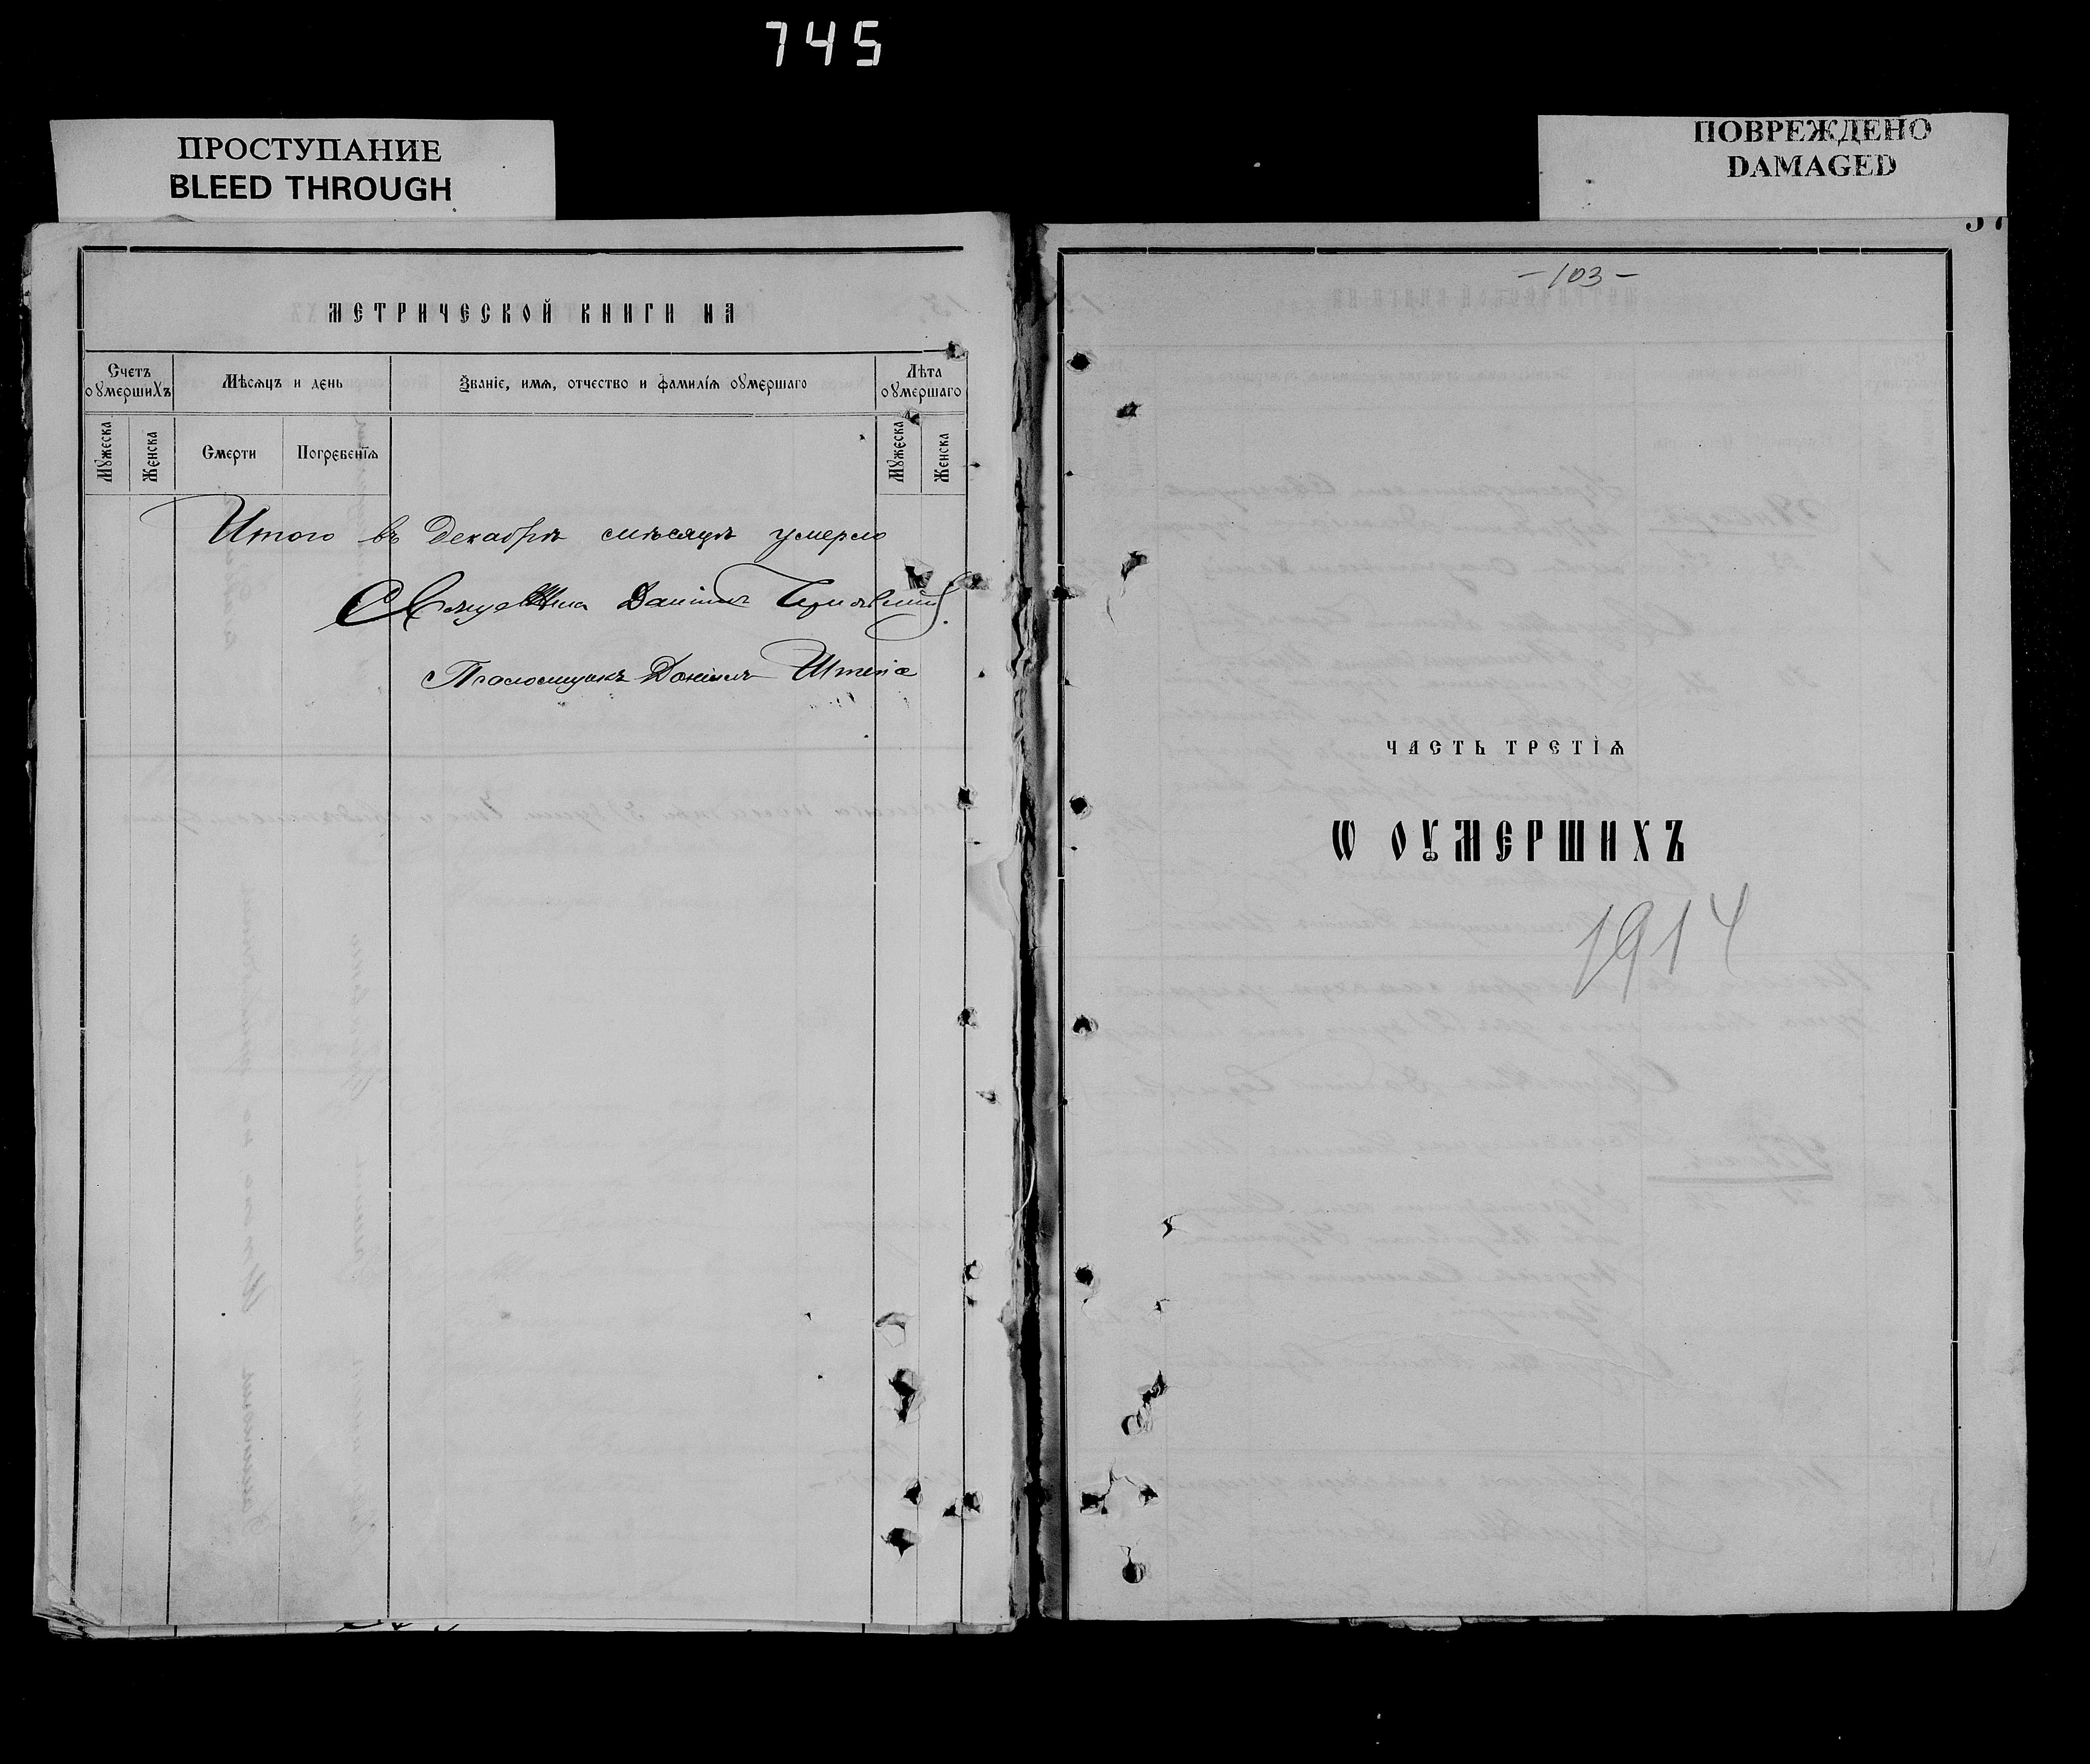 745
ПРОСТУПАНИЕ
BLEED THROUGH
ПОВРЕЖДЕНО
DAMAGED
МЕТРИЧЕСКОЙ КНИГИ НА
Счетъ оумершихъ
Мѣсяцъ и день
Званіе, имя, отчество и фамилія оумершаго
Лѣта оумершаго
Мужеска
Женска
Смерти
Погребенія
Мужеска
Женска
Итого въ Декабрѣ мѣсяцѣ умерло
Священникъ Даніилъ
Псаломщикъ Даніилъ
-103-
ЧАСТЬ ТРЕТІѦ
Ѡ ОУМЕРШИХЪ
1914